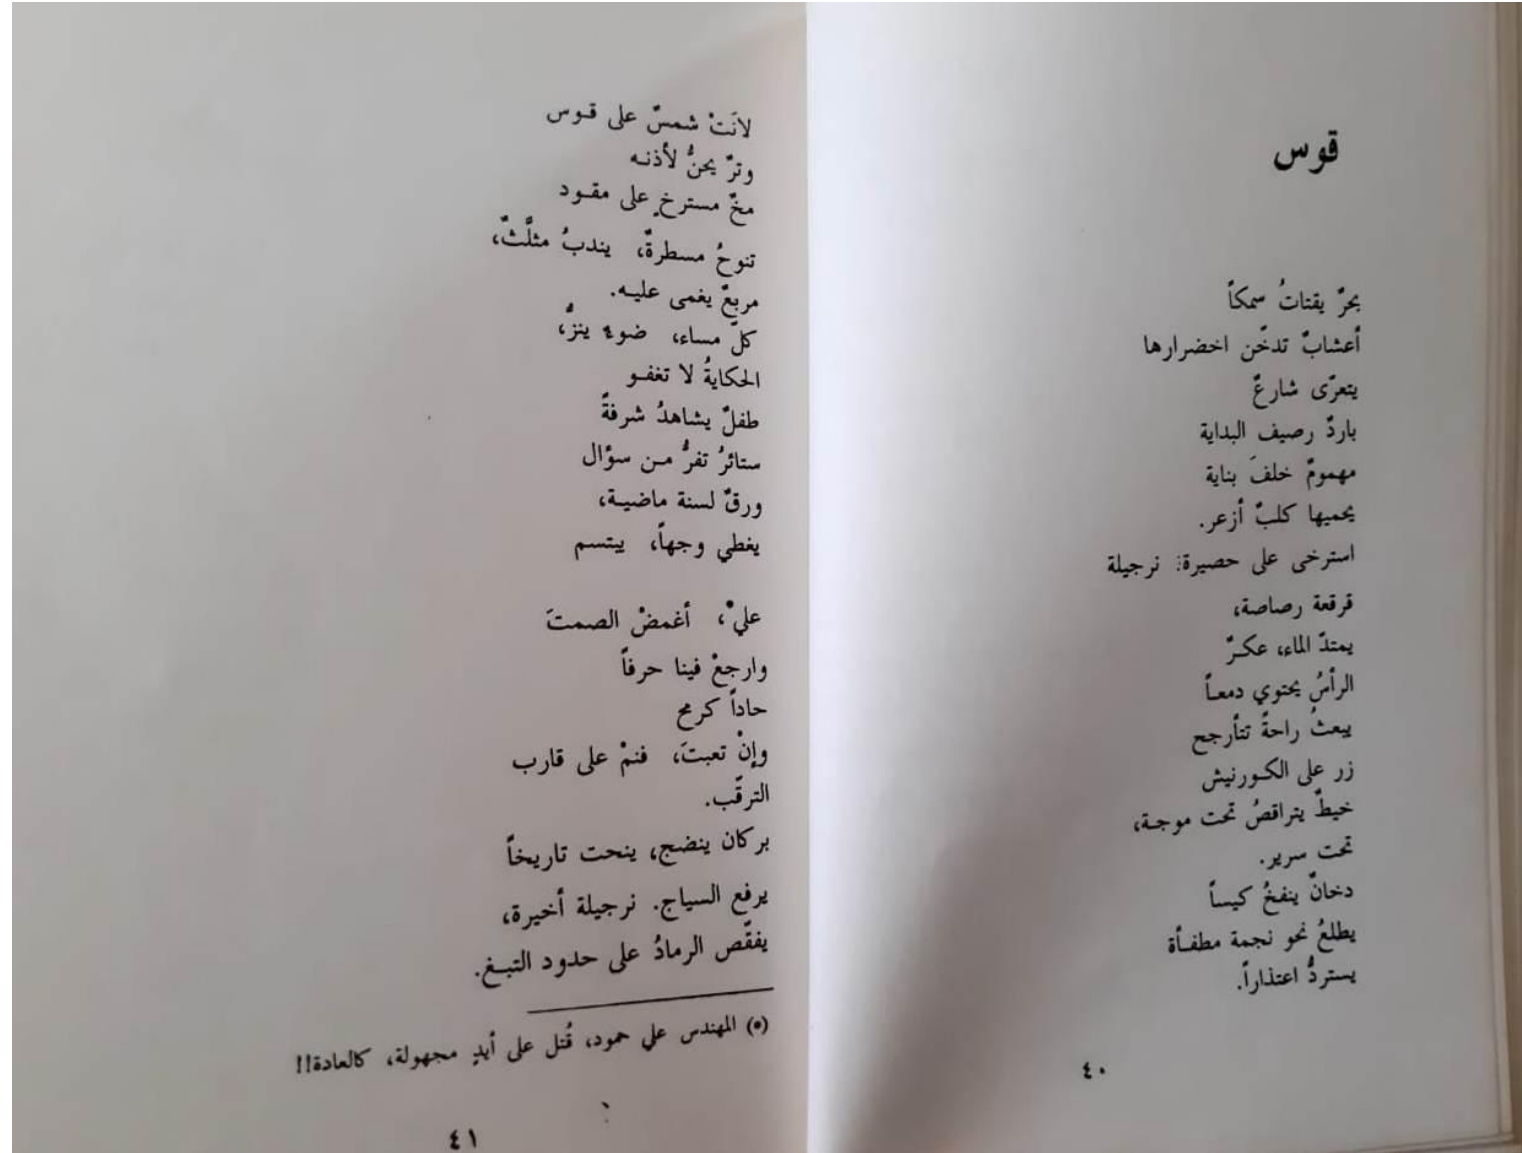 قوس
بحرٌ يقتاتُ سمكاً
أعشابٌ تدخّن اخضرارها
يتعرّى شارعٌ
باردٌ رصيف البداية
مهمومٌ خلفَ بناية
يحميها كلبٌ أزعر.
استرخى على حصيرة: نرجيلة
قرقعة رصاصة،
يمتدّ الماء، عكـرٌ
الرأسُ يحتوي دمعـاً
يبعثُ راحةً تتأرجح
زر على الكـورنيش
خيطٌ يتراقصُ تحت موجـة،
تحت سرير.
دخانٌ ينفخُ كيساً
يطلعُ نحو نجمة مطفـأة
يستردُّ اعتذاراً.
٤٠
لانَتْ شمسٌ على قـوس
وترٌ يحنُّ لأذنـه
مخٌ مسترخٍ على مقـود
تنوحُ مسطرةٌ، يندبُ مثلَّثٌ،
مربعٌ يغمى عليـه.
كلّ مساء، ضوءٌ ينزُّ،
الحكايةُ لا تغفـو
طفلٌ يشاهدُ شرفةً
ستائرُ تفرُّ مـن سؤال
ورقٌ لسنة ماضيـة،
يغطي وجهاً، يبتسم
عليْ*، أغمضْ الصمتَ
وارجعْ فينا حرفاً
حاداً كرمح
وإنْ تعبتَ، فنمْ على قارب
الترقّب.
بركان ينضج، ينحت تاريخاً
يرفع السياج. نرجيلة أخيرة،
يفقّص الرمادُ على حدود التبـغ.
(*) المهندس علي حمود، قُتل على أيدٍ مجهولة، كالعادة!!
٤١